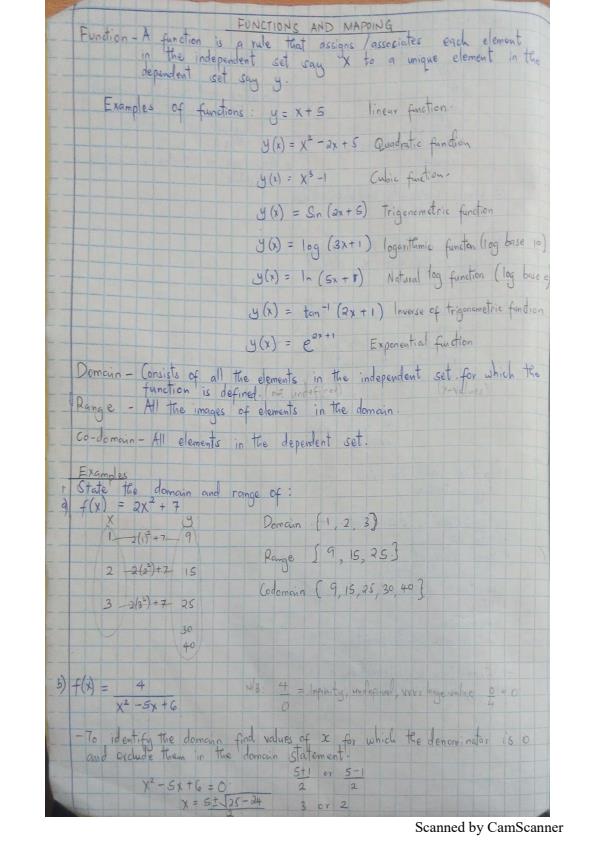 FUNCTIONS AND MAPPING
Function - A function is a rule that assigns / associates each element
in the independent set say X to a unique element in the
dependent set say y.
Examples of functions : y = x + 5 linear function.
y(x) = x² - 2x + 5 Quadratic function
y(x) = x³ - 1 Cubic function.
y(x) = Sin (2x + 5) Trigonometric function
y(x) = log (3x + 1) logarithmic function (log base 10)
y(x) = ln (5x + 8) Natural log function (log base e
y(x) = tan⁻¹ (2x + 1) Inverse of trigonometric function
y(x) = e²ˣ⁺¹ Exponential function
Domain - Consists of all the elements in the independent set for which the
function is defined. (not undefined) (x-values)
Range - All the images of elements in the domain.
Co-domain - All elements in the dependent set.
Examples
1. State the domain and range of :
a) f(x) = 2x² + 7
x y Domain {1, 2, 3}
1 2(1)² + 7 9
Range {9, 15, 25}
2 2(2²) + 7 15
Codomain {9, 15, 25, 30, 40}
3 2(3²) + 7 25
30
40
b) f(x) = 4 / x² - 5x + 6 N/B: 4/0 = Infinity, undefined, very large value 0/4 = 0
- To identify the domain find values of x for which the denominator is 0
and exclude them in the domain statement.
x² - 5x + 6 = 0 5+1/2 or 5-1/2
x = 5 ± √25 - 24 / 2 3 or 2
Scanned by CamScanner